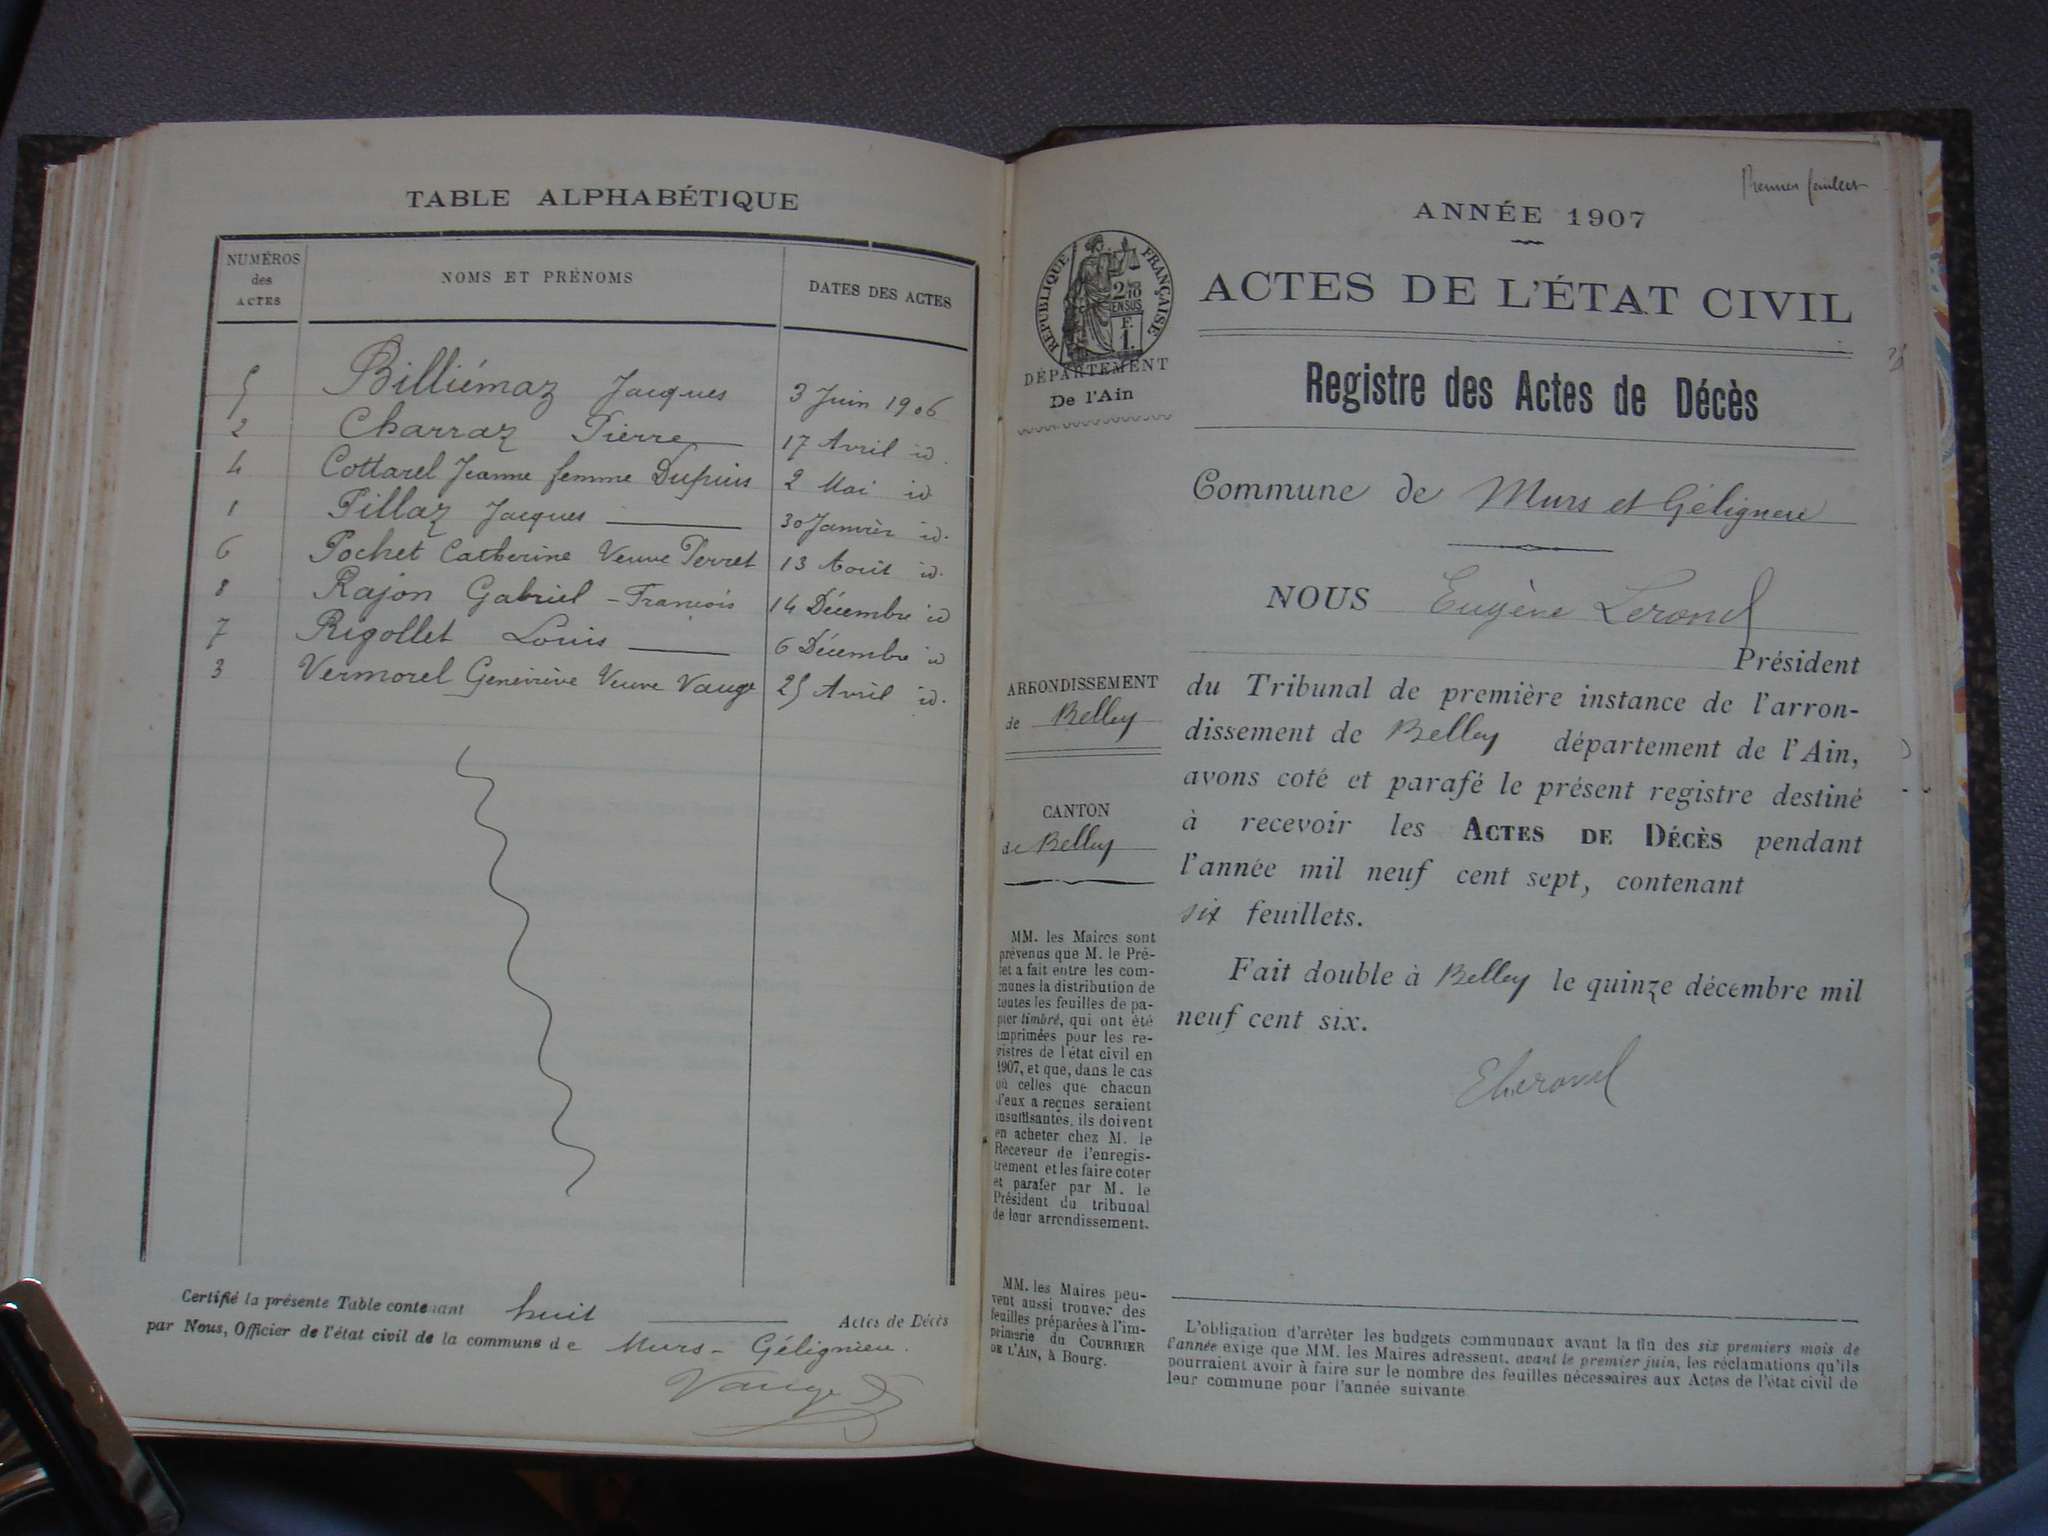 TABLE ALPHABÉTIQUE
NUMÉROS des ACTES NOMS ET PRÉNOMS DATES DES ACTES
5 Billiémaz Jacques 3 Juin 1906
2 Charraz Pierre 17 Avril id.
4 Cottarel Jeanne femme Dupuis 2 Mai id
1 Pillaz Jacques 30 Janvier id.
6 Pochet Catherine Veuve Perret 13 Août id.
8 Rajon Gabriel-François 14 Décembre id
7 Rigollet Louis 6 Décembre id
3 Vermorel Geneviève Veuve Vauge 25 Avril id.
Certifié la présente Table contenant huit Actes de Décès
par Nous, Officier de l'état civil de la commune de Murs-Gélignieu.
Vauge
Premier feuillet
ANNÉE 1907
RÉPUBLIQUE FRANÇAISE
2/10 EN SUS
F. 1.
DÉPARTEMENT
De l'Ain
ACTES DE L'ÉTAT CIVIL
Registre des Actes de Décès
Commune de Murs et Gélignieu
NOUS Eugène Lerond
Président
du Tribunal de première instance de l'arron-
dissement de Belley département de l'Ain,
avons coté et parafé le présent registre destiné
à recevoir les ACTES DE DÉCÈS pendant
l'année mil neuf cent sept, contenant
six feuillets.
Fait double à Belley le quinze décembre mil
neuf cent six.
ELerond
ARRONDISSEMENT
de Belley
CANTON
de Belley
MM. les Maires sont
prévenus que M. le Pré-
fet a fait entre les com-
munes la distribution de
toutes les feuilles de pa-
pier timbré, qui ont été
imprimées pour les re-
gistres de l'état civil en
1907, et que, dans le cas
où celles que chacun
d'eux a reçues seraient
insuffisantes, ils doivent
en acheter chez M. le
Receveur de l'enregis-
trement et les faire coter
et parafer par M. le
Président du tribunal
de leur arrondissement.
MM. les Maires peu-
vent aussi trouver des
feuilles préparées à l'im-
primerie du COURRIER
DE L'AIN, à Bourg.
L'obligation d'arrêter les budgets communaux avant la fin des six premiers mois de
l'année exige que MM. les Maires adressent, avant le premier juin, les réclamations qu'ils
pourraient avoir à faire sur le nombre des feuilles nécessaires aux Actes de l'état civil de
leur commune pour l'année suivante